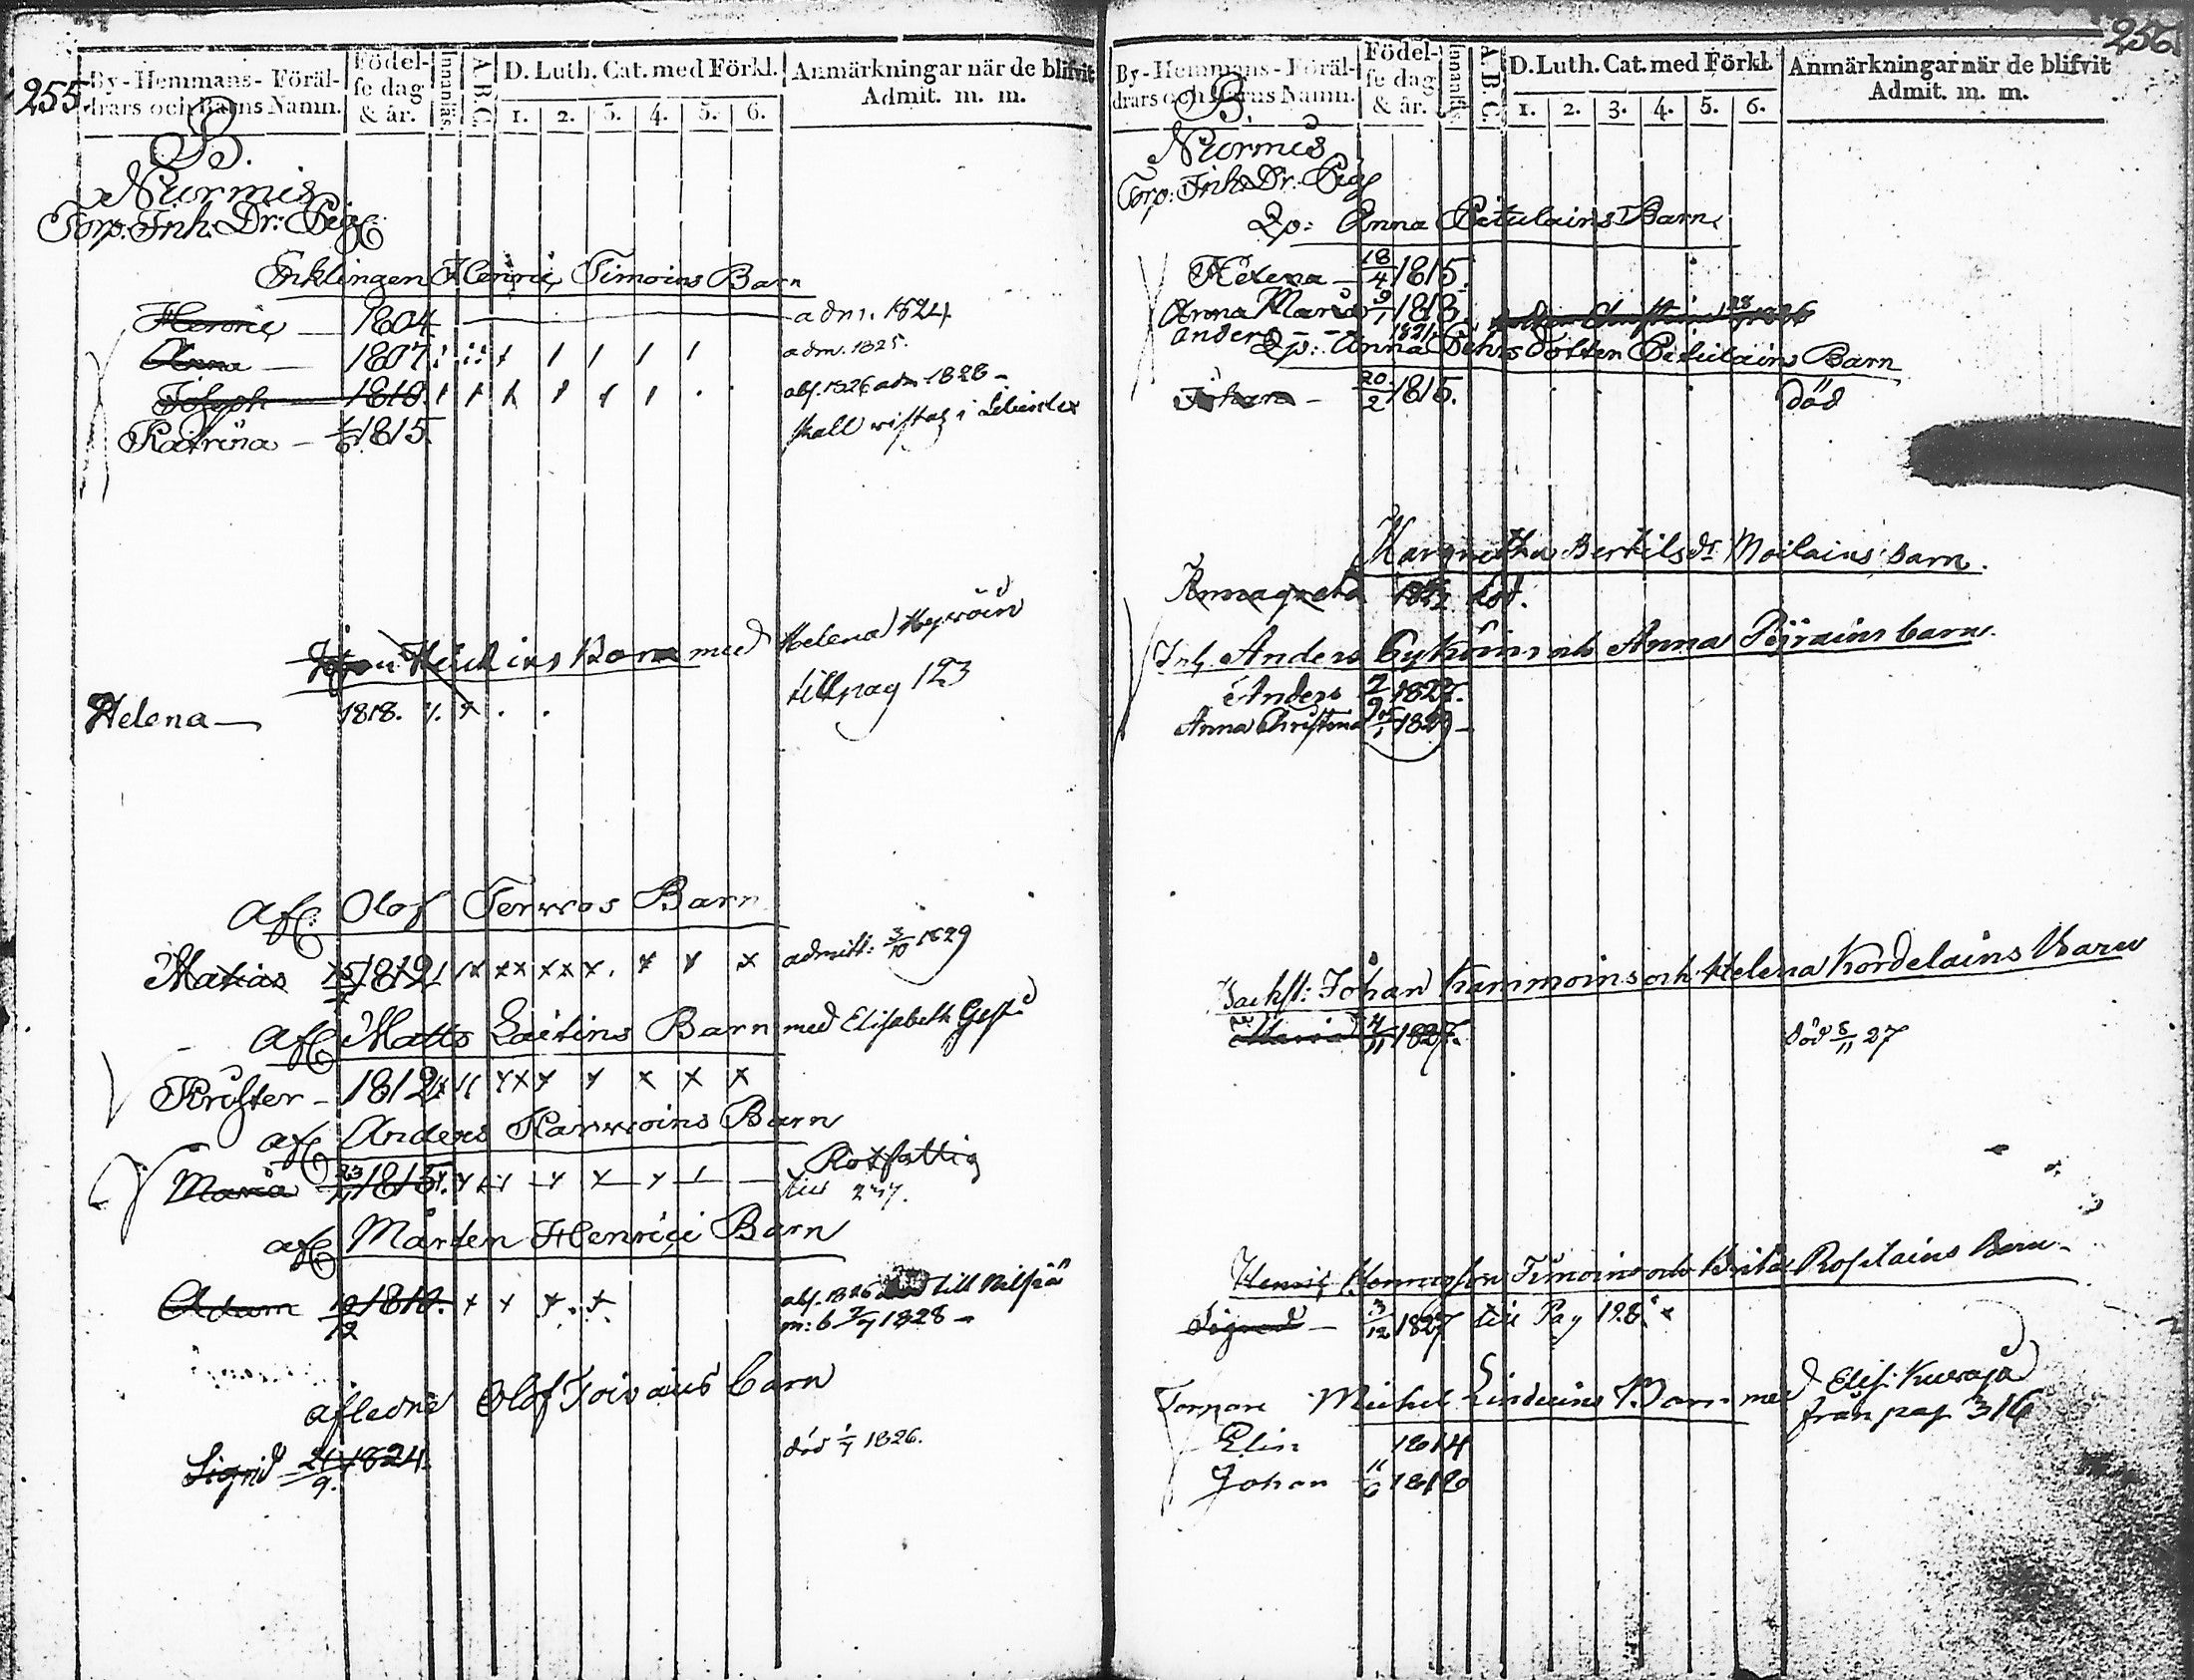 255
By-Hemmans-Föräl-
drars och Barns Namn.
Födel-
se dag
& år.
Innanläs.
A B C.
D. Luth. Cat. med Förkl.
1. 2. 3. 4. 5. 6.
Anmärkningar när de blifvit
Admit. m. m.
B.
Nurmis
Torp. Inh. Dr: Pig
Enklingen Henric Timoins Barn
Henric 1804 adm. 1824
Anna 1807 adm. 1825.
Joseph 1810. abs. 1826 adm 1828
skall vistas i
Katrina 1815
Barn med Helena Hyvöin
till pag 123
Helena 1818.
Afl. Olof Tervos Barn
Matias 1812 admitt: 3/10 1829
Afl. Matts Laitins Barn med Elisabeth
Krister 1812
afl. Anders Karvoins Barn
Maria 23 1815. Rotfattig
till
afl. Mårten Henrici Barn
Adam 12/12 1810. abs. 1826 till Nilsiä
m: b 1828
afledne Olof Toivains barn
Sigrid 21/9 1824. död 1826.
256
By-Hemmans-Föräl-
drars och Barns Namn.
Födel-
se dag
& år.
Innanläs.
A B C.
D. Luth. Cat. med Förkl.
1. 2. 3. 4. 5. 6.
Anmärkningar när de blifvit
Admit. m. m.
B.
Nurmis
Torp: Inh: Dr: Pig
Qp: Anna Pitulains Barn
Helena 18/4 1815.
Anna Maria 9/1 1818.
Anders 1821
Qp: Anna Pehrsdotter Pitulains Barn
Johan 20/2 1815. död
Margretha Bertilsdr Moilains barn.
Annagreta död.
Inh. Anders och Anna barn.
Anders 2/9 1827.
Anna Christina 1829
Backst: Johan Kammoins och Helena Kordelains Barn
Maria 4/11 1827. död 8/11 27
Henric Timoins och Brita Barn
Sigrid 3/12 1827 till Pag 198
Torpare Michel Barn med Elis: Kuraja
från pag 316
Elin 1814
Johan 11/6 1818